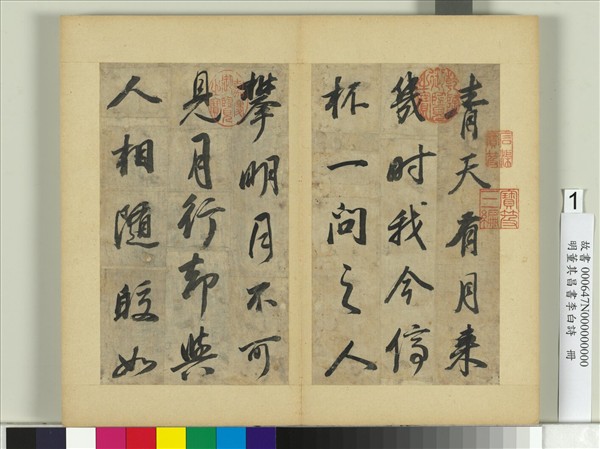 青天有月来
幾时我今停
杯一問之人
攀明月不可
見月行却與
人相随皎如
1
故書 000647N000000000
明董其昌書李白詩 冊